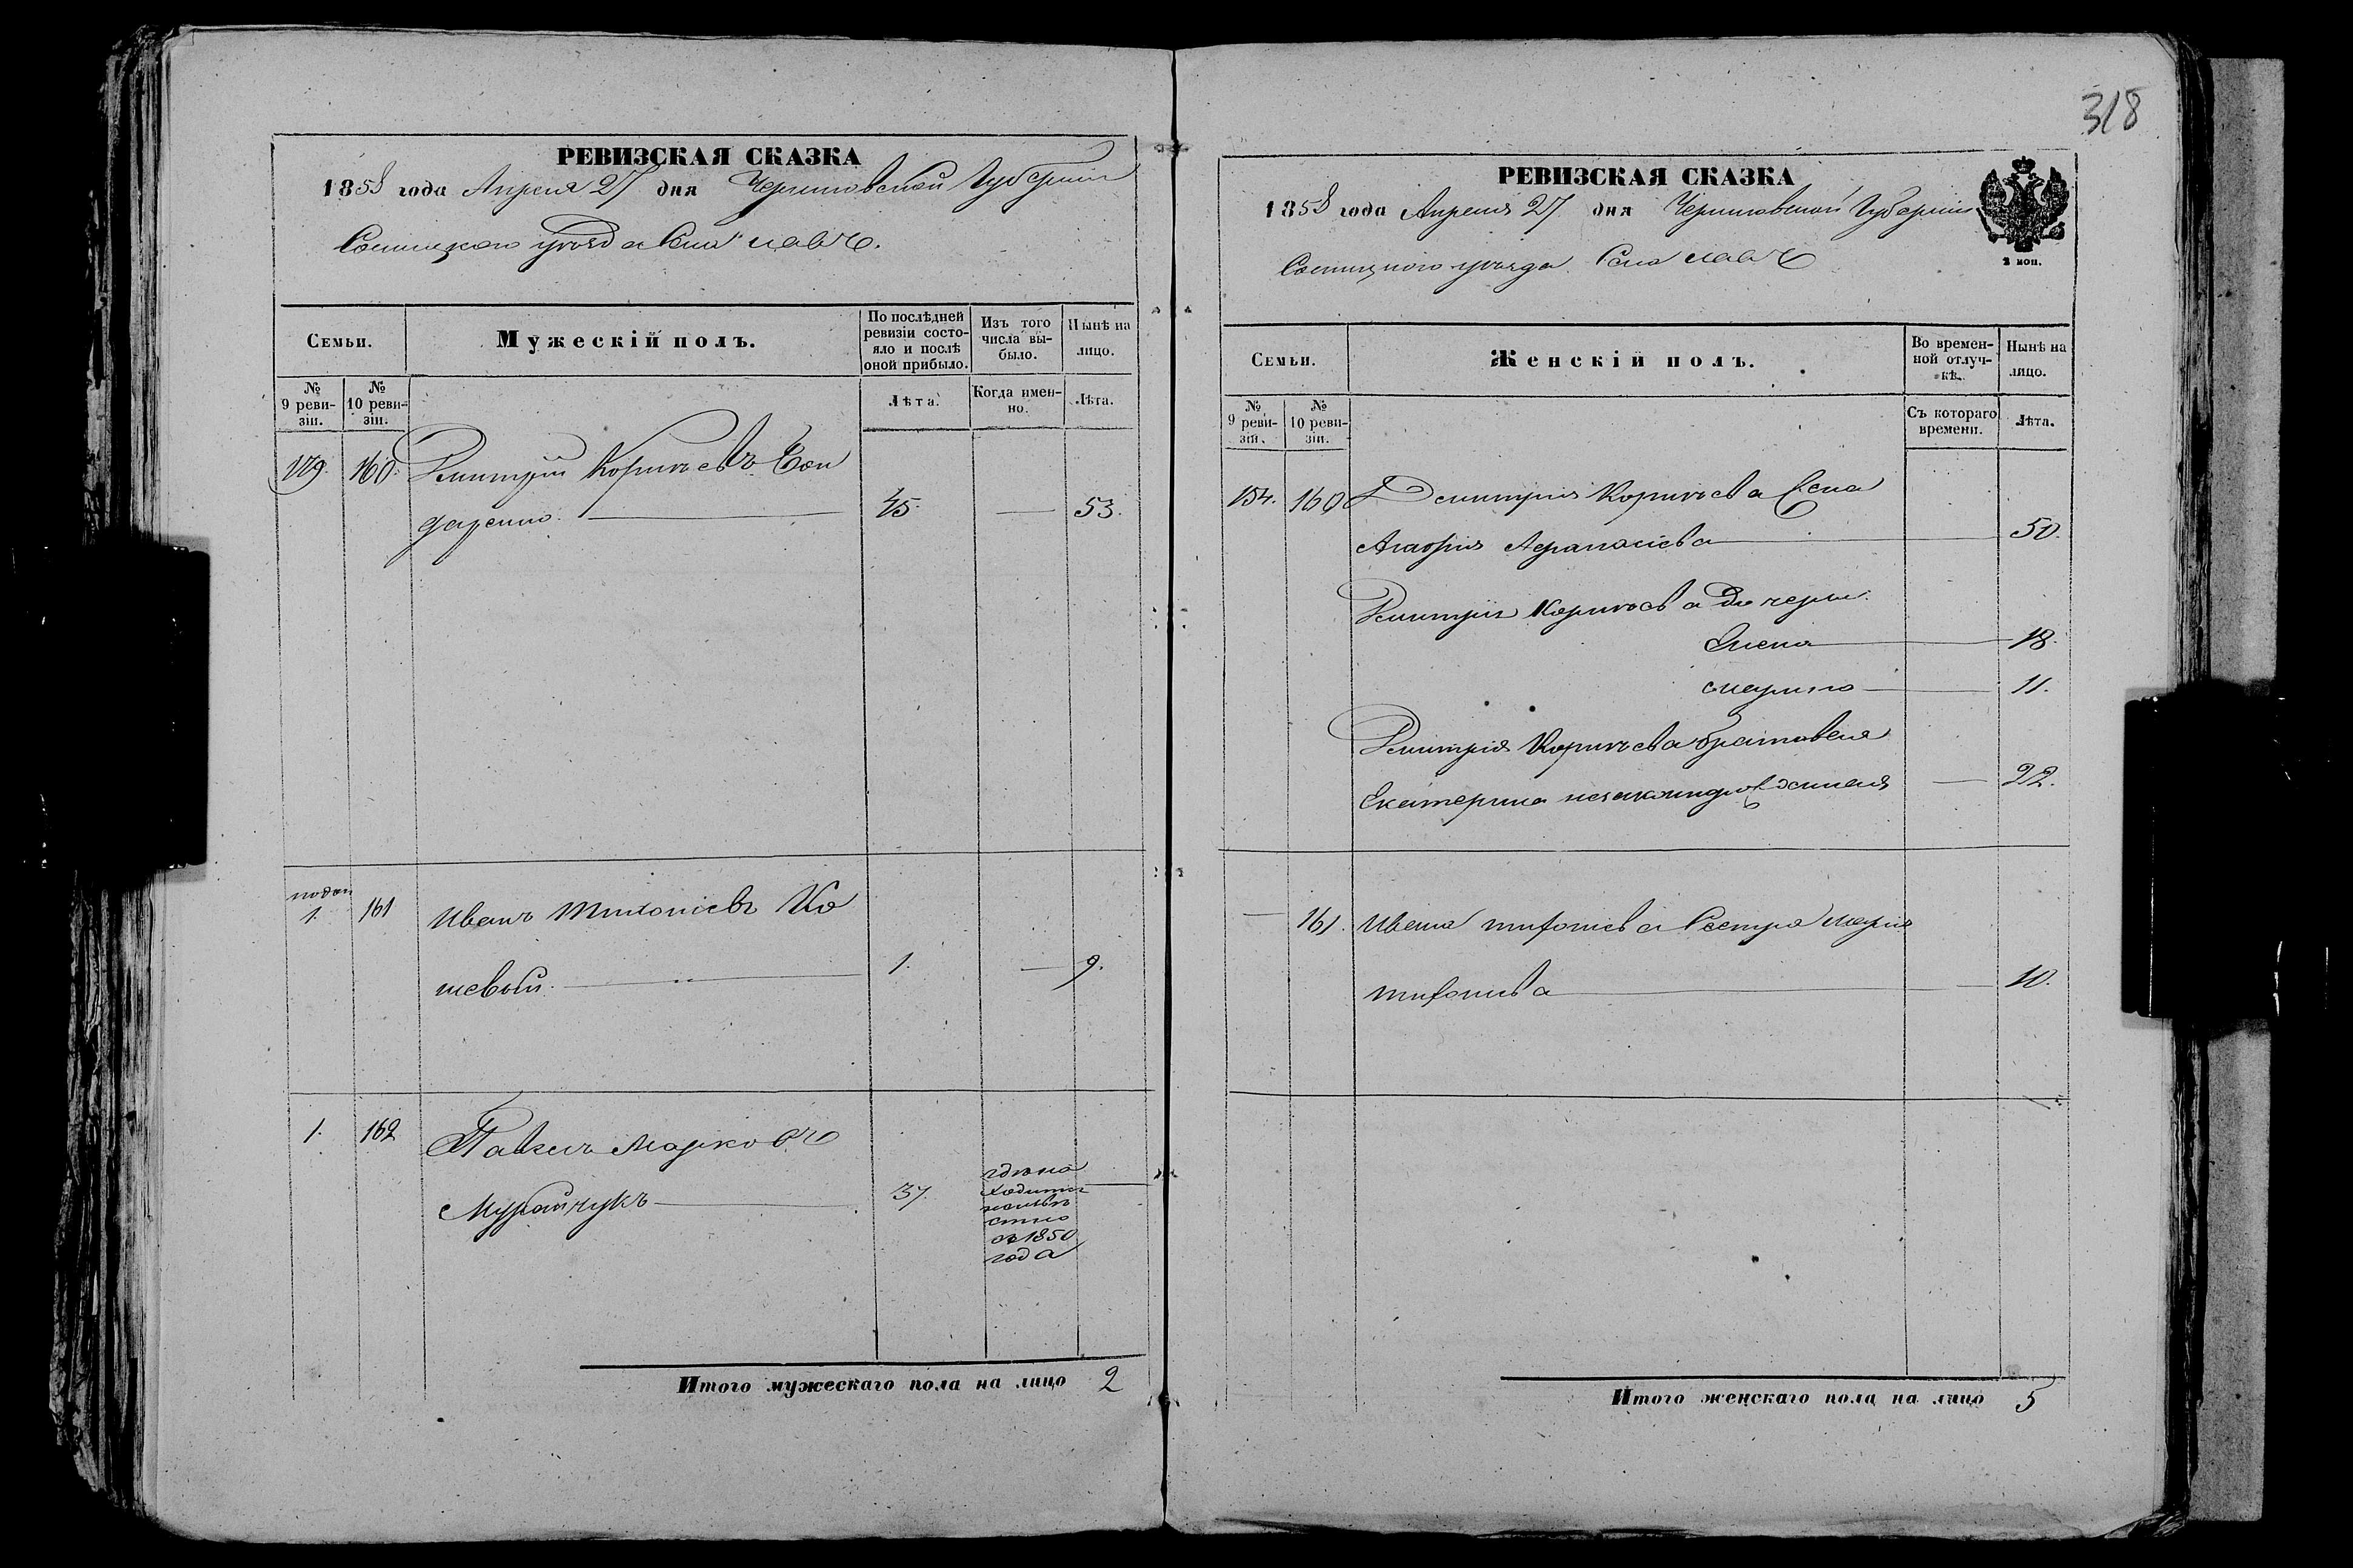 РЕВИЗСКАЯ СКАЗКА
1858 года Апреля 27 дня Черниговской Губернии
Сосницкого уезда Села
Семьи.
Мужескій полъ.
По послѣдней ревизіи состо-
яло и послѣ
оной прибыло.
Изъ того
числа вы-
было.
Нынѣ на
лицо.
№
9 реви-
зіи.
№
10 реви-
зіи.
Лѣта.
Когда имен-
но.
Лѣта.
129. 160. Дмитрій Корнѣевъ Бон
даренко. 45. 53.
1. 161 Иванъ Тихоніевъ Ко
шевый. 1. 9.
1. 162 Павелъ Марковъ
Мурайчукъ 37.
гдѣ на
ходится
неизвѣ
стно
съ 1850
года
Итого мужескаго пола на лицо 2
318
РЕВИЗСКАЯ СКАЗКА
1858 года Апреля 27 дня Черниговской Губерніи
Сосницкого уезда Села
2 коп.
Семьи.
Женскій полъ.
Во времен-
ной отлуч-
кѣ.
Нынѣ на
лицо.
№
9 реви-
зіи.
№
10 реви-
зіи.
Съ котораго
времени.
Лѣта.
154. 160 Дмитрія Корнѣева Жена
Агафія Афанасіева 50.
Дмитрія Корнѣева Дочери
Елена 18.
Марина 11.
Дмитрія Корнѣева
Екатерина 22.
161. Ивана Тихоніева Сестра Марія
Тихоніева 10.
Итого женскаго пола на лицо 5